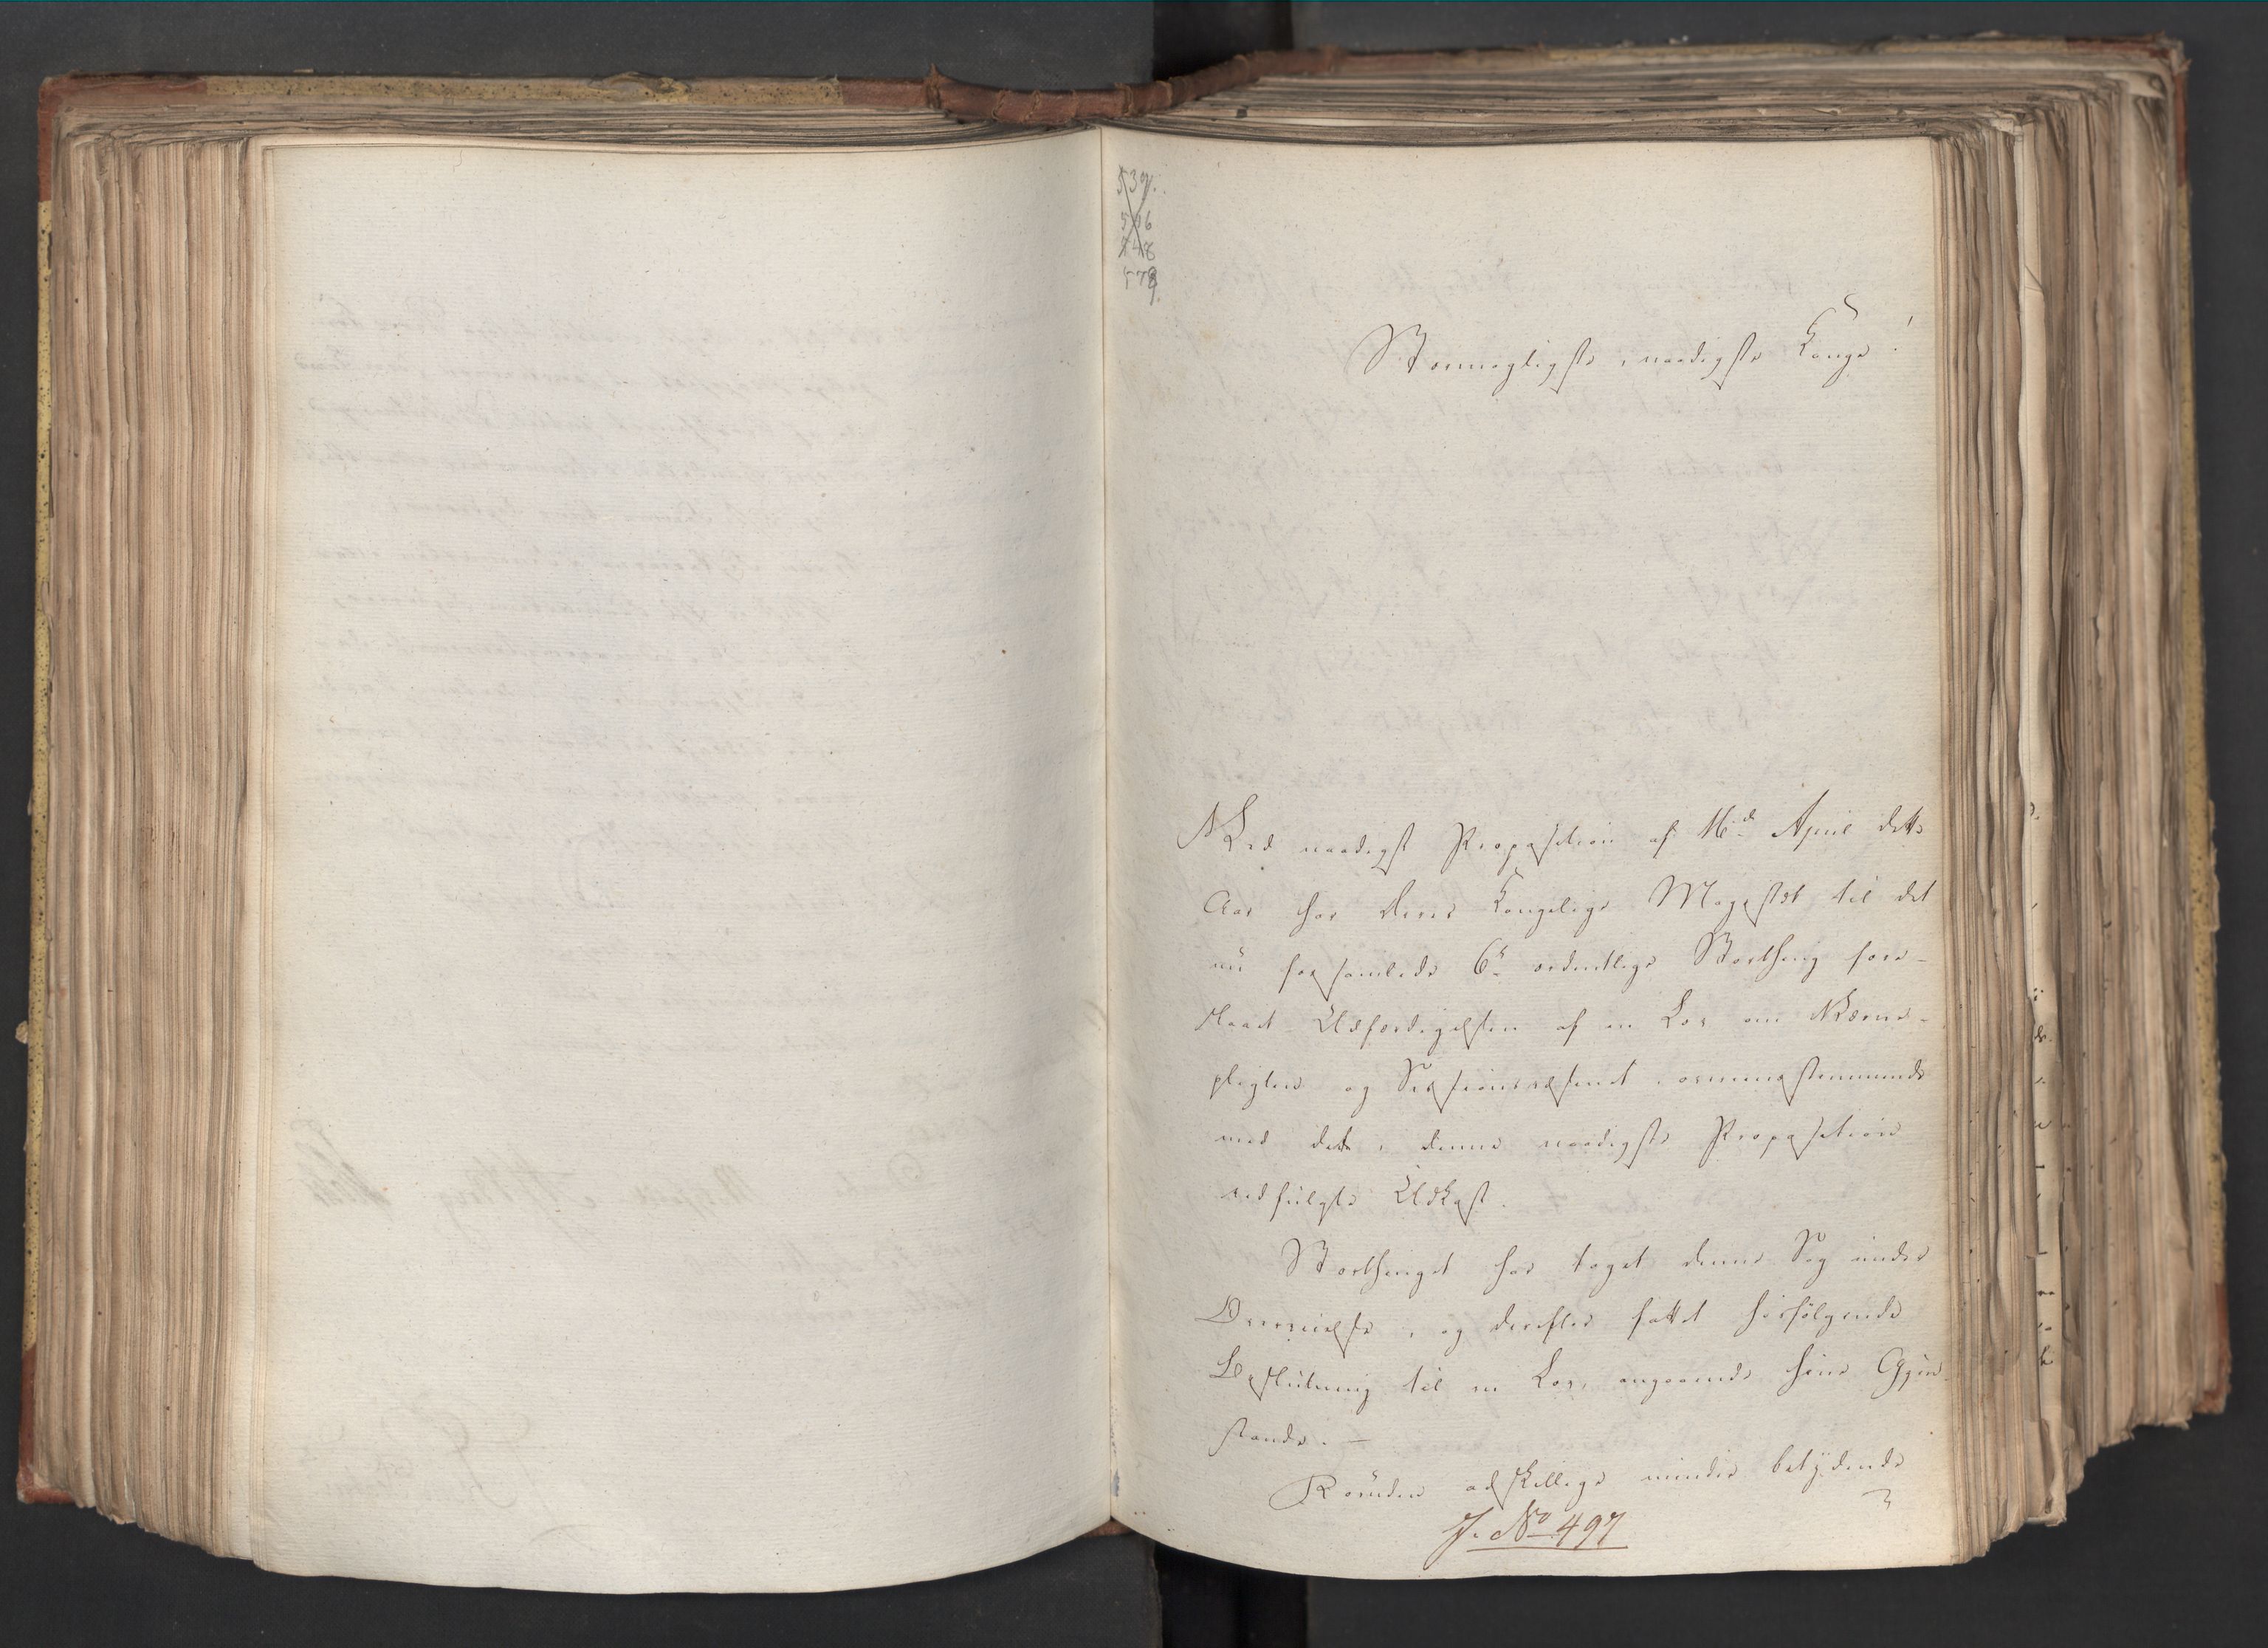 539.
546
548
579.
Stormægtigste, naadigste Konge!
Ved naadigst Proposition af 16de April dette
Aar har Deres Kongelige Majestæt til det
nu forsamlede 6te ordentlige Storthing fore-
slaaet Udfærdigelsen af en Lov om Værne-
pligten og Sessionsvæsenet, overensstemmende
med det, denne naadigste Proposition
vedfulgte Udkast.
Storthinget har taget denne Sag under
Overveielse, og derefter fattet hosfølgende
Beslutning til en Lov, angaaende hine Gjen-
stande. —
Foruden adskillige mindre betydende
J. No 497